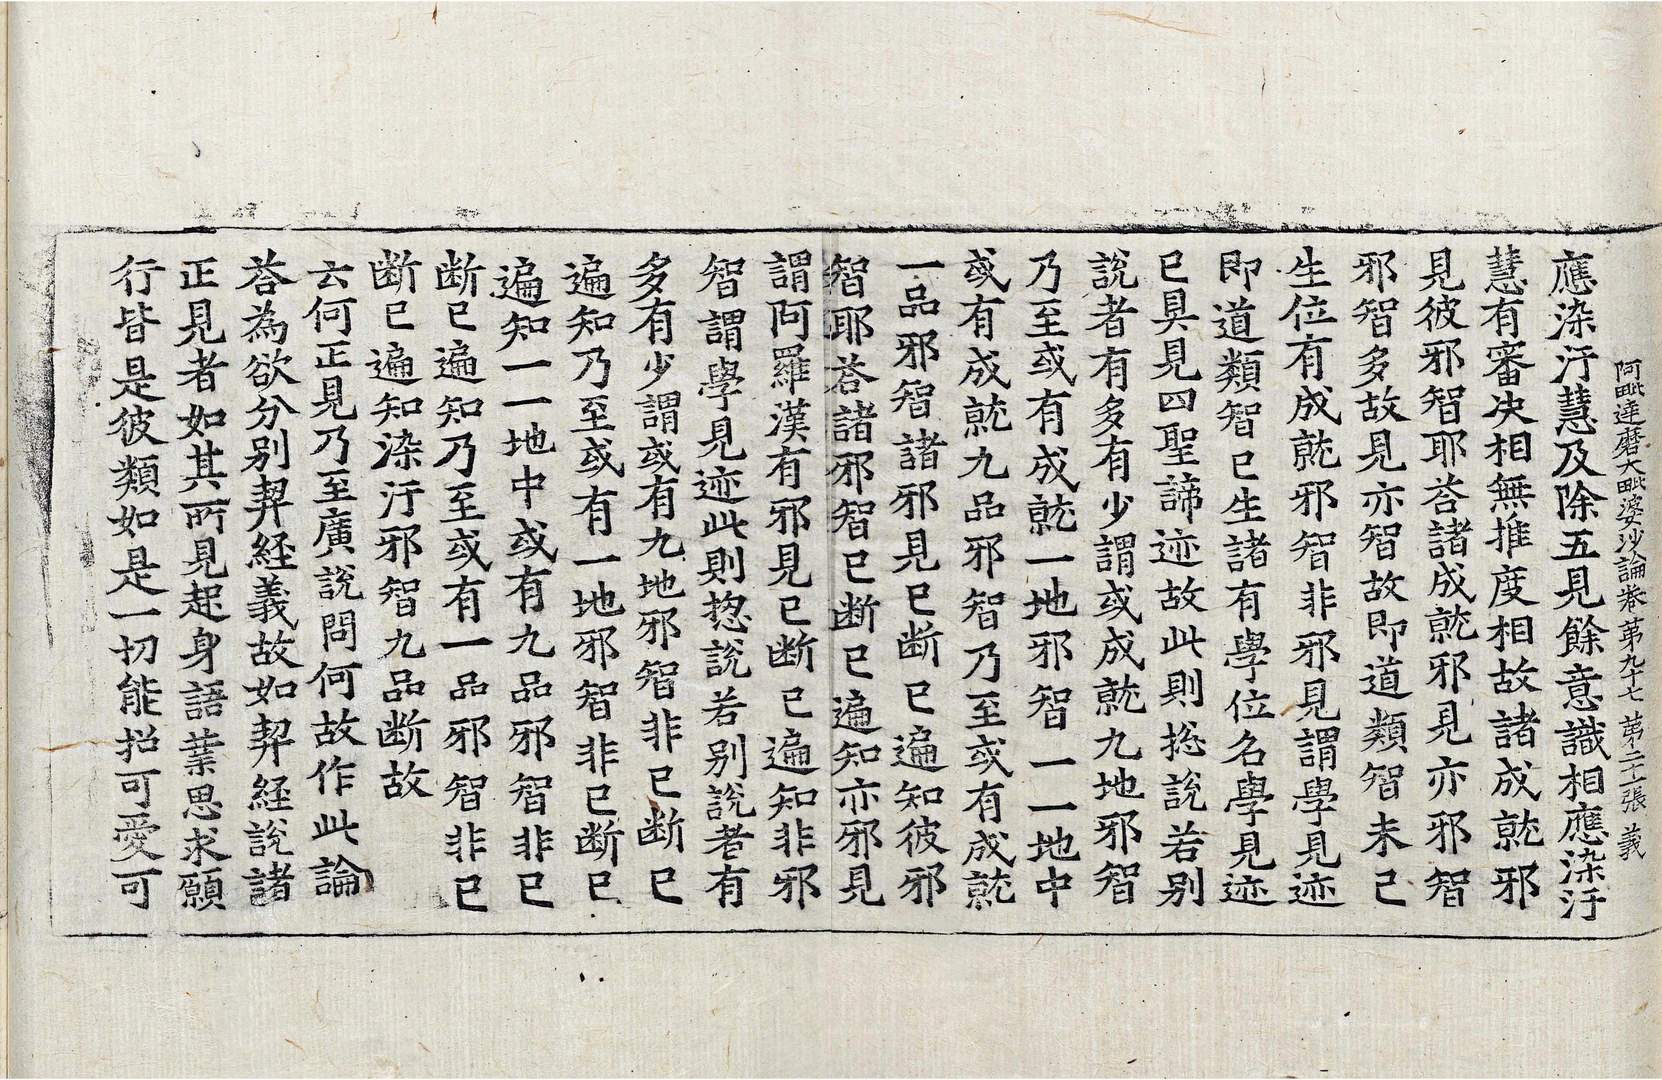 阿毗達磨大毗婆沙論卷第九十七 第二十張 義
應染汙慧及除五見餘意識相應染汙
慧有審決相無推度相故諸成就邪
見彼邪智耶荅諸成就邪見亦邪智
邪智多故見亦智故即道類智未已
生位有成就邪智非邪見謂學見迹
即道類智已生諸有學位名學見迹
已具見四聖諦迹故此則捴說若別
說者有多有少謂或成就九地邪智
乃至或有成就一地邪智一一地中
或有成就九品邪智乃至或有成就
一品邪智諸邪見已断已遍知彼邪
智耶荅諸邪智已断已遍知亦邪見
謂阿羅漢有邪見已断已遍知非邪
智謂學見迹此則揔說若别說者有
多有少謂或有九地邪智非已断已
遍知乃至或有一地邪智非已断已
遍知一一地中或有九品邪智非已
断已遍知乃至或有一品邪智非已
断已遍知染汙邪智九品断故
云何正見乃至廣說問何故作此論
荅為欲分别契経義故如契経說諸
正見者如其所見起身語業思求願
行皆是彼類如是一切能招可愛可